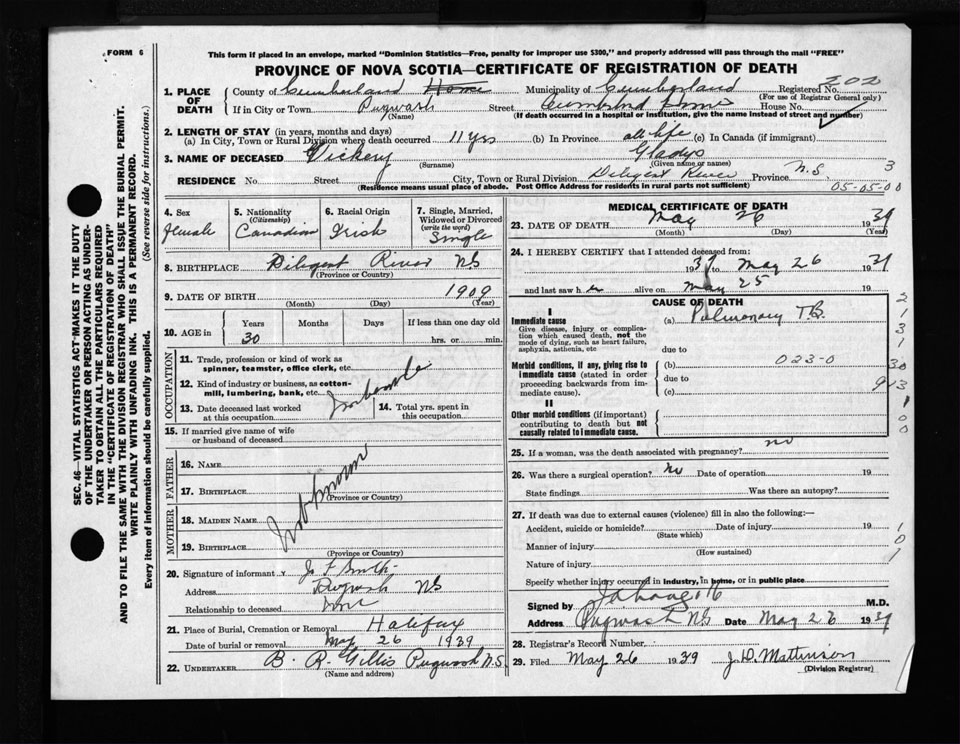 FORM 6
This form if placed in an envelope, marked "Dominion Statistics—Free, penalty for improper use $300," and properly addressed will pass through the mail "FREE"
PROVINCE OF NOVA SCOTIA—CERTIFICATE OF REGISTRATION OF DEATH
1. PLACE OF DEATH County of Cumberland Home Municipality of Cumberland Registered No. 202
(For use of Registrar General only)
If in City or Town Pugwash Street Cumberland Home House No.
(Name) (If death occurred in a hospital or institution, give the name instead of street and number)
2. LENGTH OF STAY (in years, months and days)
(a) In City, Town or Rural Division where death occurred 11 yrs (b) In Province all life (c) In Canada (if immigrant)
3. NAME OF DECEASED Vickery Gladys
(Surname) (Given name or names)
RESIDENCE No. Street City, Town or Rural Division Diligent River Province N.S. 3
(Residence means usual place of abode. Post Office Address for residents in rural parts not sufficient) 05-05-00
4. Sex Female
5. Nationality (Citizenship) Canadian
6. Racial Origin Irish
7. Single, Married, Widowed or Divorced (write the word) Single
8. BIRTHPLACE Diligent River NS
(Province or Country)
9. DATE OF BIRTH 1909
(Month) (Day) (Year)
10. AGE in Years Months Days If less than one day old
30 hrs. or min.
OCCUPATION
11. Trade, profession or kind of work as spinner, teamster, office clerk, etc.
12. Kind of industry or business, as cotton-mill, lumbering, bank, etc.
13. Date deceased last worked at this occupation
14. Total yrs. spent in this occupation
15. If married give name of wife or husband of deceased
FATHER
16. NAME
17. BIRTHPLACE
(Province or Country)
MOTHER
18. MAIDEN NAME
19. BIRTHPLACE
(Province or Country)
Not known
20. Signature of informant J. F. Smith
Address Pugwash NS
Relationship to deceased
21. Place of Burial, Cremation or Removal Halifax
Date of burial or removal May 26 1939
22. UNDERTAKER B. R. Gillis Pugwash N.S.
(Name and address)
MEDICAL CERTIFICATE OF DEATH
23. DATE OF DEATH May 26 1939
(Month) (Day) (Year)
24. I HEREBY CERTIFY that I attended deceased from:
1937 to May 26 1939
and last saw her alive on May 25 19
CAUSE OF DEATH
I
Immediate cause (a) Pulmonary T.B.
Give disease, injury or complication which caused death, not the mode of dying, such as heart failure, asphyxia, asthenia, etc
due to
Morbid conditions, if any, giving rise to immediate cause (stated in order proceeding backwards from immediate cause). (b) 023-0
due to
(c)
II
Other morbid conditions (if important) contributing to death but not causally related to immediate cause.
2
1
3
1
30
913
1
0
0
25. If a woman, was the death associated with pregnancy? no
26. Was there a surgical operation? No Date of operation 19
State findings Was there an autopsy?
27. If death was due to external causes (violence) fill in also the following:—
Accident, suicide or homicide? Date of injury 19
(State which)
Manner of injury
(How sustained)
Nature of injury
1
0
1
Specify whether injury occurred in industry, in home, or in public place
Signed by M.D.
Address Pugwash NS Date May 26 1939
28. Registrar's Record Number
29. Filed May 26 1939 J. D. Mattinson
(Division Registrar)
SEC. 46—VITAL STATISTICS ACT—MAKES IT THE DUTY OF THE UNDERTAKER OR PERSON ACTING AS UNDERTAKER TO OBTAIN ALL THE PARTICULARS REQUIRED IN THE "CERTIFICATE OF REGISTRATION OF DEATH"
AND TO FILE THE SAME WITH THE DIVISION REGISTRAR WHO SHALL ISSUE THE BURIAL PERMIT.
WRITE PLAINLY WITH UNFADING INK. THIS IS A PERMANENT RECORD.
Every item of information should be carefully supplied. (See reverse side for instructions.)